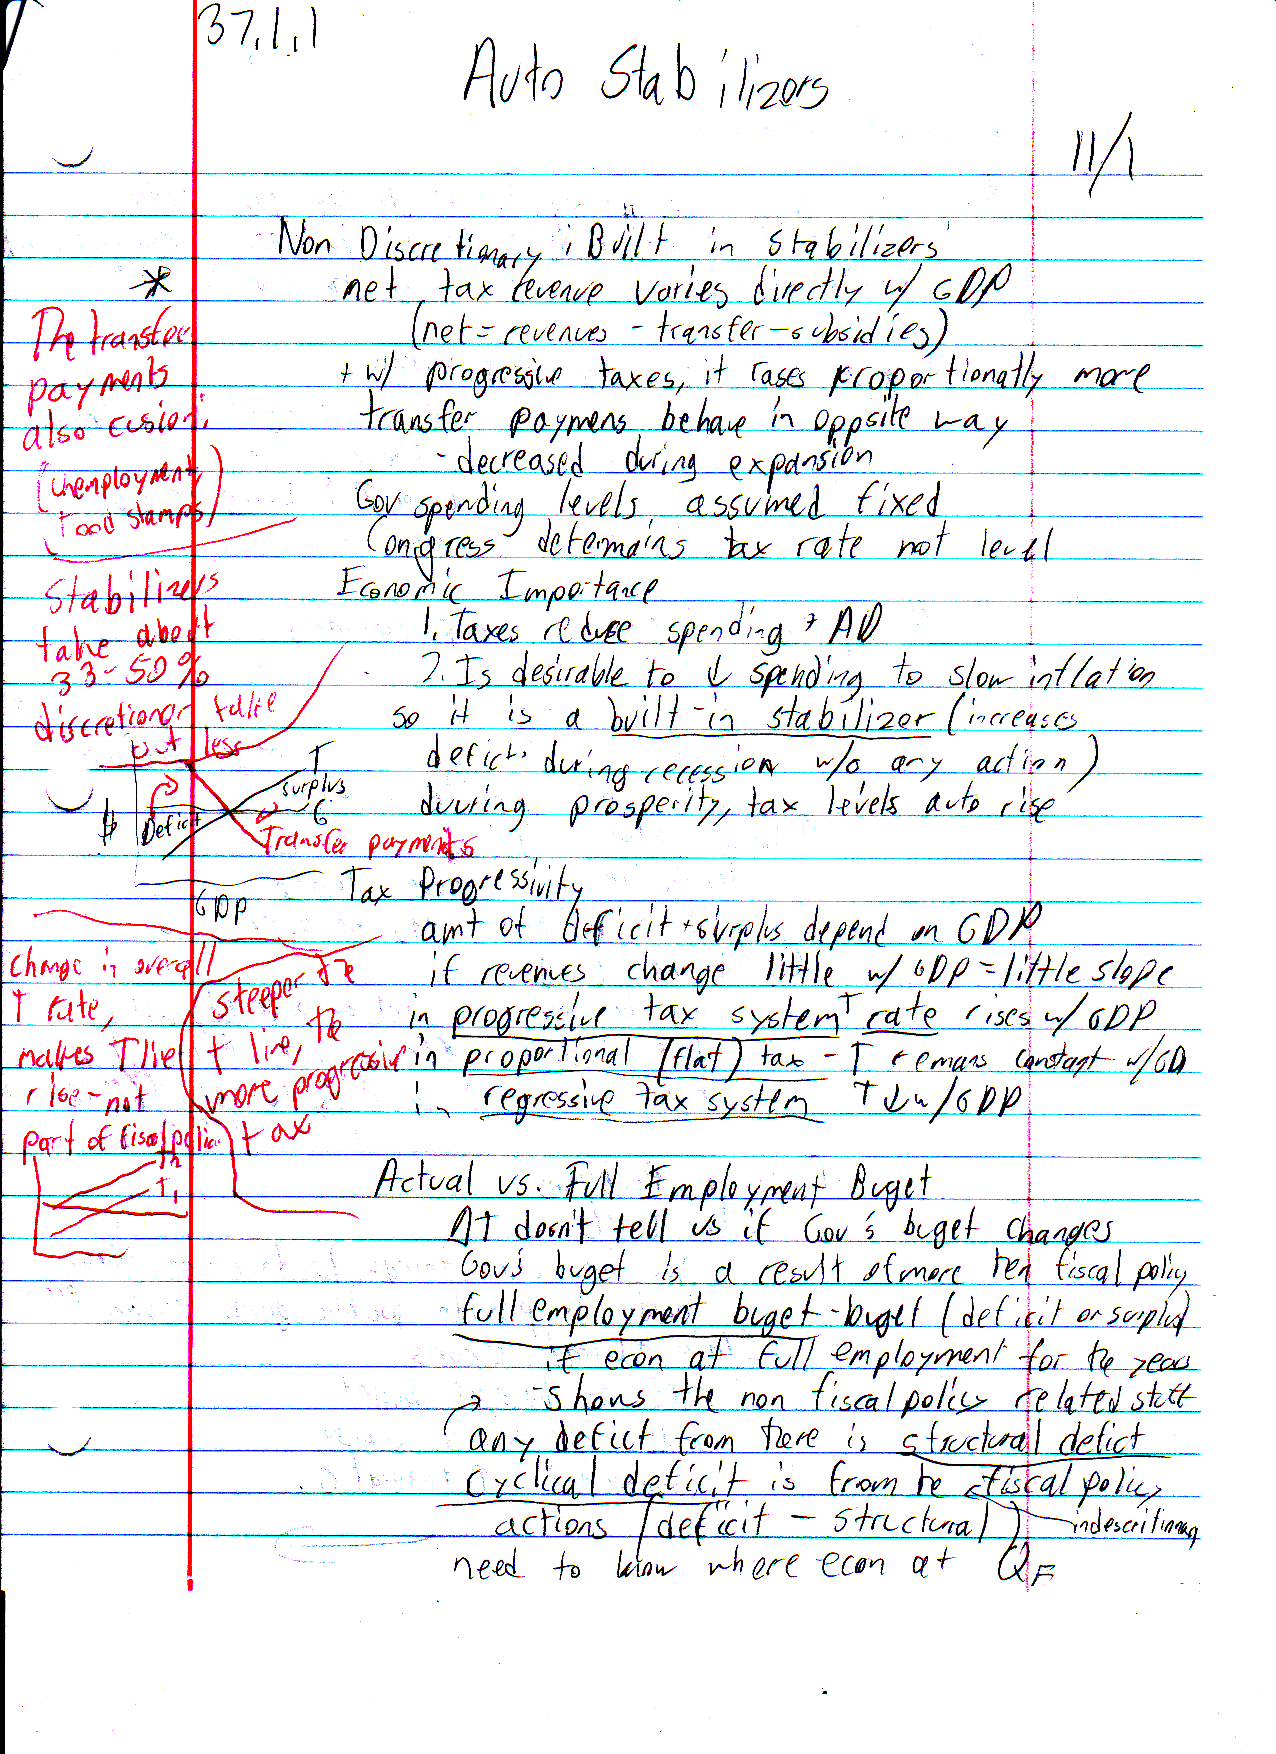 37.1.1
Auto Stabilizers
11/1
Non Discretionary : Built in stabilizers
net tax revenue varies directly w/ GDP
(net = revenues - transfer - subsidies)
+ w/ progressive taxes, it rases proportionatly more
transfer paymens behave in oppsite way
- decreased during expansion
Gov spending levels assumed fixed
Congress determains tax rate not level
Economic Importance
1. Taxes reduce spending + AD
2. Is desirable to ↓ spending to slow inflation
so it is a built-in stabilizer (increases
deficit during recession w/o any action)
duuring prosperity, tax levels auto rise
Tax Progressivity
amt of deficit + surplus depend on GDP
if revenues change little w/ GDP = little slope
in progressive tax system T rate rises w/ GDP
in proportional (flat) tax - T remans constant w/GD
in regressive tax system T ↓ w/ GDP
Actual vs. Full Employment Buget
AT doesn't tell us if Gov's buget changes
Gov's buget is a result of more then fiscal policy
full employment buget - buget (deficit or surplus)
if econ at full employment for the year
→ - shows the non fiscal policy related stuff
any deficit from there is structural defict
Cyclical deficit is from the fiscal policy
actions (deficit - structural)
need to know where econ at QF
*
The transfer
payments
also cusion.
(unemployment,
food stamps)
Stabilizers
take about
33-50%
discretionar take
but less
T
surplus
G
$
Deficit
Transfer payments
GDP
Change in overall
T rate,
makes T line
rise - not
part of fiscal policy
steeper the
t line, the
more progressive
tax
T2
T1